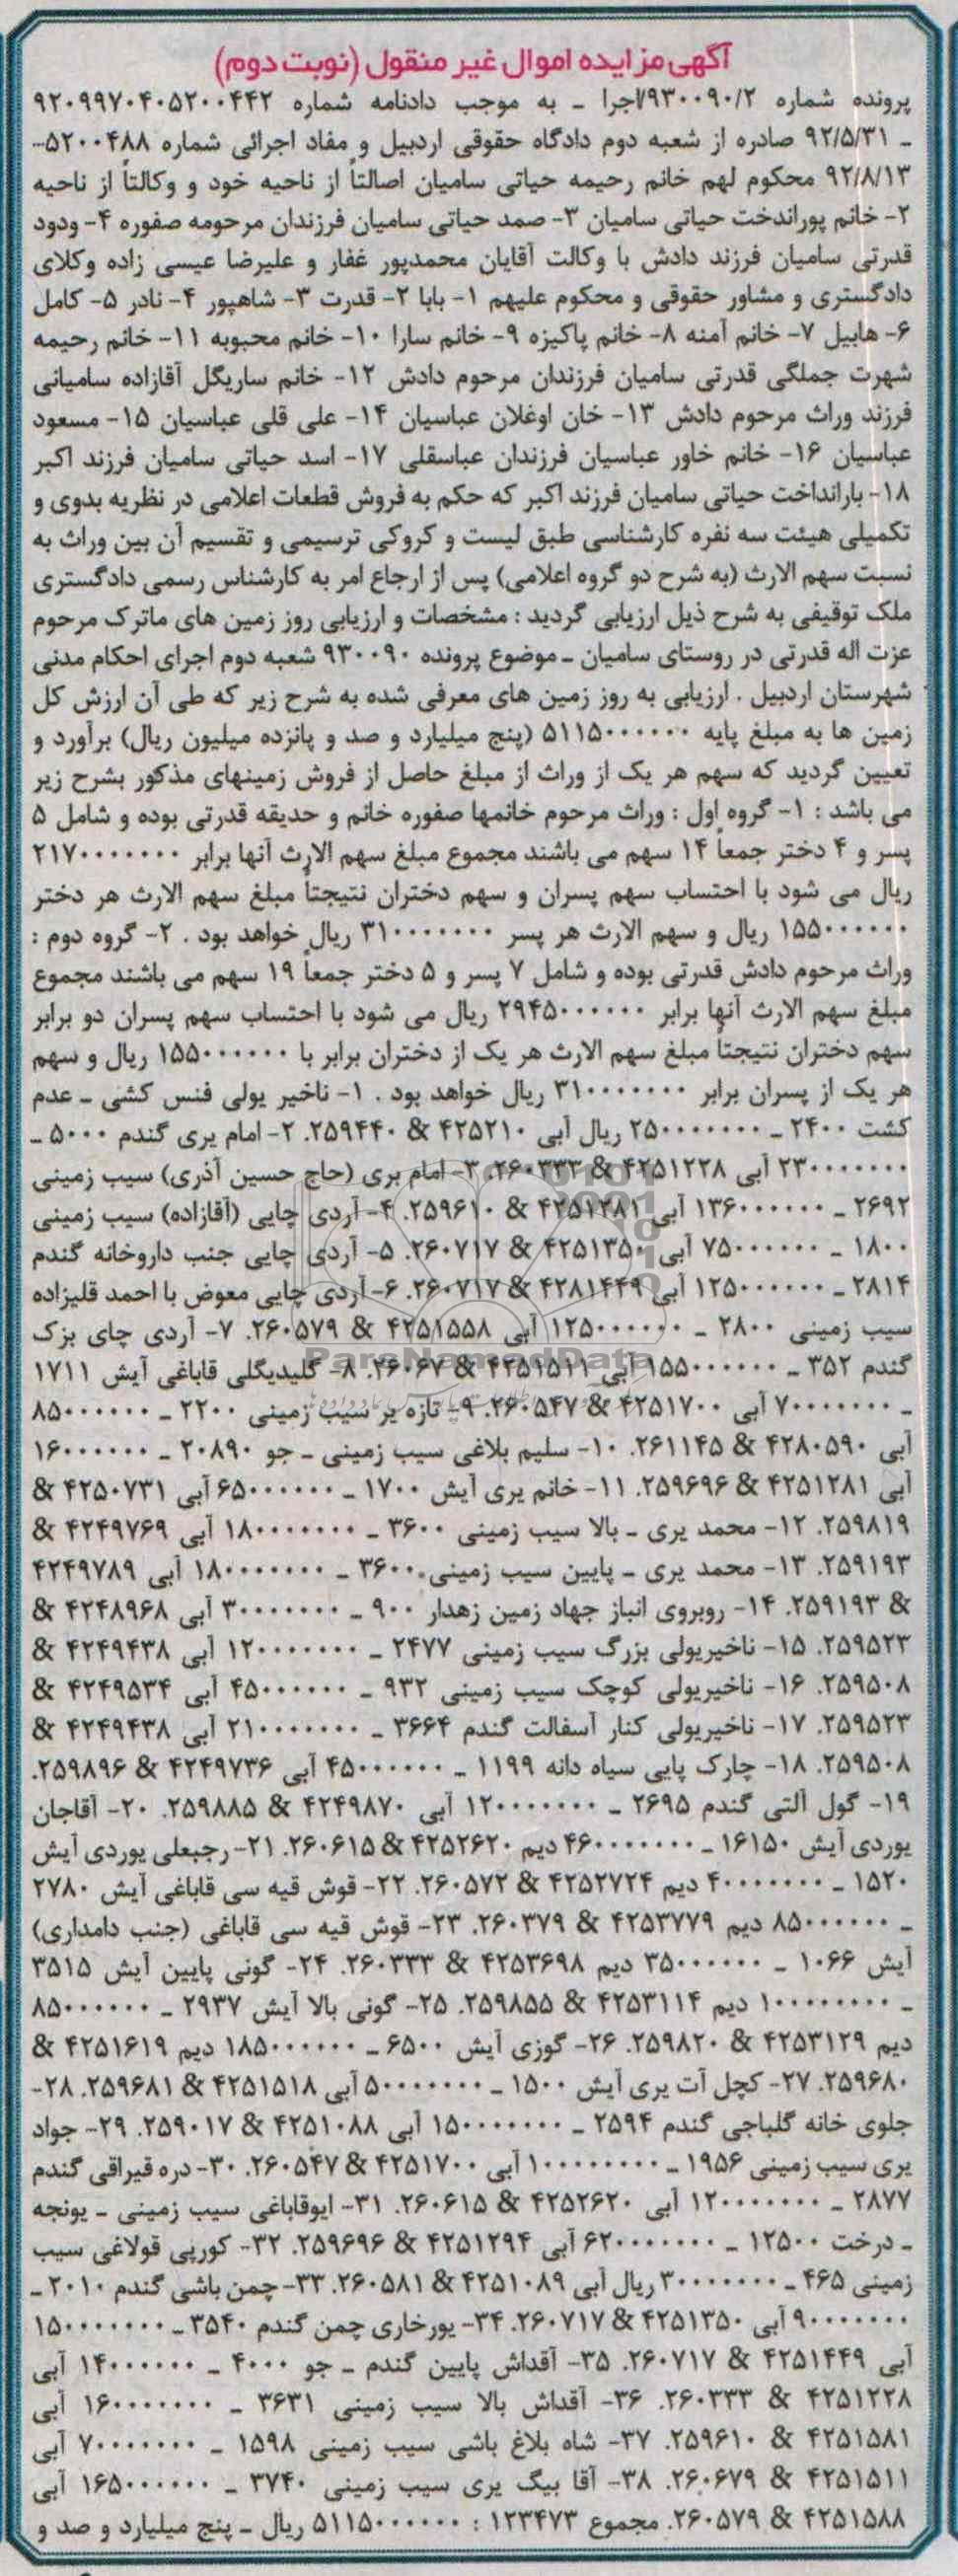 آگهی مزایده اموال غیر منقول (نوبت دوم)
پرونده شماره ۹۳۰۰۹۰/۲/اجرا ـ به موجب دادنامه شماره ۹۲۰۹۹۷۰۴۰۵۲۰۰۴۴۲
ـ ۹۲/۵/۳۱ صادره از شعبه دوم دادگاه حقوقی اردبیل و مفاد اجرائی شماره ۵۲۰۰۴۸۸-
۹۲/۸/۱۳ محکوم لهم خانم رحیمه حیاتی سامیان اصالتاً از ناحیه خود و وکالتاً از ناحیه
۲- خانم پوراندخت حیاتی سامیان ۳- صمد حیاتی سامیان فرزندان مرحومه صفوره ۴- ودود
قدرتی سامیان فرزند دادش با وکالت آقایان محمدپور غفار و علیرضا عیسی زاده وکلای
دادگستری و مشاور حقوقی و محکوم علیهم ۱- بابا ۲- قدرت ۳- شاهپور ۴- نادر ۵- کامل
۶- هابیل ۷- خانم آمنه ۸- خانم پاکیزه ۹- خانم سارا ۱۰- خانم محبوبه ۱۱- خانم رحیمه
شهرت جملگی قدرتی سامیان فرزندان مرحوم دادش ۱۲- خانم ساریگل آقازاده سامیانی
فرزند وراث مرحوم دادش ۱۳- خان اوغلان عباسیان ۱۴- علی قلی عباسیان ۱۵- مسعود
عباسیان ۱۶- خانم خاور عباسیان فرزندان عباسقلی ۱۷- اسد حیاتی سامیان فرزند اکبر
۱۸- بارانداخت حیاتی سامیان فرزند اکبر که حکم به فروش قطعات اعلامی در نظریه بدوی و
تکمیلی هیئت سه نفره کارشناسی طبق لیست و کروکی ترسیمی و تقسیم آن بین وراث به
نسبت سهم الارث (به شرح دو گروه اعلامی) پس از ارجاع امر به کارشناس رسمی دادگستری
ملک توقیفی به شرح ذیل ارزیابی گردید : مشخصات و ارزیابی روز زمین های ماترک مرحوم
عزت اله قدرتی در روستای سامیان ـ موضوع پرونده ۹۳۰۰۹۰ شعبه دوم اجرای احکام مدنی
شهرستان اردبیل . ارزیابی به روز زمین های معرفی شده به شرح زیر که طی آن ارزش کل
زمین ها به مبلغ پایه ۵۱۱۵۰۰۰۰۰۰ (پنج میلیارد و صد و پانزده میلیون ریال) برآورد و
تعیین گردید که سهم هر یک از وراث از مبلغ حاصل از فروش زمینهای مذکور بشرح زیر
می باشد : ۱- گروه اول : وراث مرحوم خانمها صفوره خانم و حدیقه قدرتی بوده و شامل ۵
پسر و ۴ دختر جمعاً ۱۴ سهم می باشند مجموع مبلغ سهم الارث آنها برابر ۲۱۷۰۰۰۰۰۰۰
ریال می شود با احتساب سهم پسران و سهم دختران نتیجتاً مبلغ سهم الارث هر دختر
۱۵۵۰۰۰۰۰۰ ریال و سهم الارث هر پسر ۳۱۰۰۰۰۰۰۰ ریال خواهد بود . ۲- گروه دوم :
وراث مرحوم دادش قدرتی بوده و شامل ۷ پسر و ۵ دختر جمعاً ۱۹ سهم می باشند مجموع
مبلغ سهم الارث آنها برابر ۲۹۴۵۰۰۰۰۰۰ ریال می شود با احتساب سهم پسران دو برابر
سهم دختران نتیجتاً مبلغ سهم الارث هر یک از دختران برابر با ۱۵۵۰۰۰۰۰۰ ریال و سهم
هر یک از پسران برابر ۳۱۰۰۰۰۰۰۰ ریال خواهد بود . ۱- ناخیر یولی فنس کشی ـ عدم
کشت ۲۴۰۰ ـ ۲۵۰۰۰۰۰۰۰ ریال آبی ۴۲۵۲۱۰ & ۲۵۹۴۴۰. ۲- امام یری گندم ۵۰۰۰ ـ
۲۳۰۰۰۰۰۰۰ آبی ۴۲۵۱۲۲۸ & ۲۶۰۳۳۳. ۳- امام بری (حاج حسین آذری) سیب زمینی
۲۶۹۲ ـ ۱۳۶۰۰۰۰۰۰ آبی ۴۲۵۱۲۸۱ & ۲۵۹۶۱۰. ۴- آردی چایی (آقازاده) سیب زمینی
۱۸۰۰ ـ ۷۵۰۰۰۰۰۰ آبی ۴۲۵۱۳۵۰ & ۲۶۰۷۱۷. ۵- آردی چایی جنب داروخانه گندم
۲۸۱۴ ـ ۱۲۵۰۰۰۰۰۰ آبی ۴۲۸۱۴۴۹ & ۲۶۰۷۱۷. ۶- آردی چایی معوض با احمد قلیزاده
سیب زمینی ۲۸۰۰ ـ ۱۲۵۰۰۰۰۰۰ آبی ۴۲۵۱۵۵۸ & ۲۶۰۵۷۹. ۷- آردی چای بزک
گندم ۳۵۲ ـ ۱۵۵۰۰۰۰۰۰ آبی ۴۲۵۱۵۱۱ & ۲۶۰۶۷. ۸- گلیدیگلی قاباغی آیش ۱۷۱۱
ـ ۷۰۰۰۰۰۰۰ آبی ۴۲۵۱۷۰۰ & ۲۶۰۵۴۷. ۹- تازه یر سیب زمینی ۲۲۰۰ ـ ۸۵۰۰۰۰۰۰
آبی ۴۲۸۰۵۹۰ & ۲۶۱۱۴۵. ۱۰- سلیم بلاغی سیب زمینی ـ جو ۲۰۸۹۰ ـ ۱۶۰۰۰۰۰۰
آبی ۴۲۵۱۲۸۱ & ۲۵۹۶۹۶. ۱۱- خانم یری آیش ۱۷۰۰ ـ ۶۵۰۰۰۰۰۰ آبی ۴۲۵۰۷۳۱ &
۲۵۹۸۱۹. ۱۲- محمد یری ـ بالا سیب زمینی ۳۶۰۰ ـ ۱۸۰۰۰۰۰۰۰ آبی ۴۲۴۹۷۶۹ &
۲۵۹۱۹۳. ۱۳- محمد یری ـ پایین سیب زمینی ۳۶۰۰ ـ ۱۸۰۰۰۰۰۰۰ آبی ۴۲۴۹۷۸۹
& ۲۵۹۱۹۳. ۱۴- روبروی انباز جهاد زمین زهدار ۹۰۰ ـ ۳۰۰۰۰۰۰۰ آبی ۴۲۴۸۹۶۸ &
۲۵۹۵۲۳. ۱۵- ناخیریولی بزرگ سیب زمینی ۲۴۷۷ ـ ۱۲۰۰۰۰۰۰۰ آبی ۴۲۴۹۴۳۸ &
۲۵۹۵۰۸. ۱۶- ناخیریولی کوچک سیب زمینی ۹۳۲ ـ ۴۵۰۰۰۰۰۰ آبی ۴۲۴۹۵۳۴ &
۲۵۹۵۲۳. ۱۷- ناخیریولی کنار آسفالت گندم ۳۶۶۴ ـ ۲۱۰۰۰۰۰۰۰ آبی ۴۲۴۹۴۳۸ &
۲۵۹۵۰۸. ۱۸- چارک پایی سیاه دانه ۱۱۹۹ ـ ۴۵۰۰۰۰۰۰ آبی ۴۲۴۹۷۳۶ & ۲۵۹۸۹۶.
۱۹- گول آلتی گندم ۲۶۹۵ ـ ۱۲۰۰۰۰۰۰۰ آبی ۴۲۴۹۸۷۰ & ۲۵۹۸۸۵. ۲۰- آقاجان
یوردی آیش ۱۶۱۵۰ ـ ۴۶۰۰۰۰۰۰۰ دیم ۴۲۵۲۶۲۰ & ۲۶۰۶۱۵. ۲۱- رجبعلی یوردی آیش
۱۵۲۰ ـ ۴۰۰۰۰۰۰۰ دیم ۴۲۵۲۷۲۴ & ۲۶۰۵۷۲. ۲۲- قوش قیه سی قاباغی آیش ۲۷۸۰
ـ ۸۵۰۰۰۰۰۰ دیم ۴۲۵۳۷۷۹ & ۲۶۰۳۷۹. ۲۳- قوش قیه سی قاباغی (جنب دامداری)
آیش ۱۰۶۶ ـ ۳۵۰۰۰۰۰۰ دیم ۴۲۵۳۶۹۸ & ۲۶۰۳۳۳. ۲۴- گونی پایین آیش ۳۵۱۵
ـ ۱۰۰۰۰۰۰۰۰ دیم ۴۲۵۳۱۱۴ & ۲۵۹۸۵۵. ۲۵- گونی بالا آیش ۲۹۳۷ ـ ۸۵۰۰۰۰۰۰
دیم ۴۲۵۳۱۲۹ & ۲۵۹۸۲۰. ۲۶- گوزی آیش ۶۵۰۰ ـ ۱۸۵۰۰۰۰۰۰ دیم ۴۲۵۱۶۱۹ &
۲۵۹۶۸۰. ۲۷- کچل آت یری آیش ۱۵۰۰ ـ ۵۰۰۰۰۰۰۰ آبی ۴۲۵۱۵۱۸ & ۲۵۹۶۸۱. ۲۸-
جلوی خانه گلباجی گندم ۲۵۹۴ ـ ۱۵۰۰۰۰۰۰۰ آبی ۴۲۵۱۰۸۸ & ۲۵۹۰۱۷. ۲۹- جواد
یری سیب زمینی ۱۹۵۶ ـ ۱۰۰۰۰۰۰۰۰ آبی ۴۲۵۱۷۰۰ & ۲۶۰۵۴۷. ۳۰- دره قیراقی گندم
۲۸۷۷ ـ ۱۲۰۰۰۰۰۰۰ آبی ۴۲۵۲۶۲۰ & ۲۶۰۶۱۵. ۳۱- ایوقاباغی سیب زمینی ـ یونجه
ـ درخت ۱۲۵۰۰ ـ ۶۲۰۰۰۰۰۰۰ آبی ۴۲۵۱۲۹۴ & ۲۵۹۶۹۶. ۳۲- کورپی قولاغی سیب
زمینی ۴۶۵ ـ ۳۰۰۰۰۰۰۰ ریال آبی ۴۲۵۱۰۸۹ & ۲۶۰۵۸۱. ۳۳- چمن باشی گندم ۲۰۱۰ ـ
۹۰۰۰۰۰۰۰ آبی ۴۲۵۱۳۵۰ & ۲۶۰۷۱۷. ۳۴- یورخاری چمن گندم ۳۵۴۰ ـ ۱۵۰۰۰۰۰۰۰
آبی ۴۲۵۱۴۴۹ & ۲۶۰۷۱۷. ۳۵- آقداش پایین گندم ـ جو ۴۰۰۰ ـ ۱۴۰۰۰۰۰۰ آبی
۴۲۵۱۲۲۸ & ۲۶۰۳۳۳. ۳۶- آقداش بالا سیب زمینی ۳۶۳۱ ـ ۱۶۰۰۰۰۰۰۰ آبی
۴۲۵۱۵۸۱ & ۲۵۹۶۱۰. ۳۷- شاه بلاغ باشی سیب زمینی ۱۵۹۸ ـ ۷۰۰۰۰۰۰۰ آبی
۴۲۵۱۵۱۱ & ۲۶۰۶۷۹. ۳۸- آقا بیگ یری سیب زمینی ۳۷۴۰ ـ ۱۶۵۰۰۰۰۰۰ آبی
۴۲۵۱۵۸۸ & ۲۶۰۵۷۹. مجموع ۱۲۳۴۷۳ : ۵۱۱۵۰۰۰۰۰۰ ریال ـ پنج میلیارد و صد و
ParsNamadData